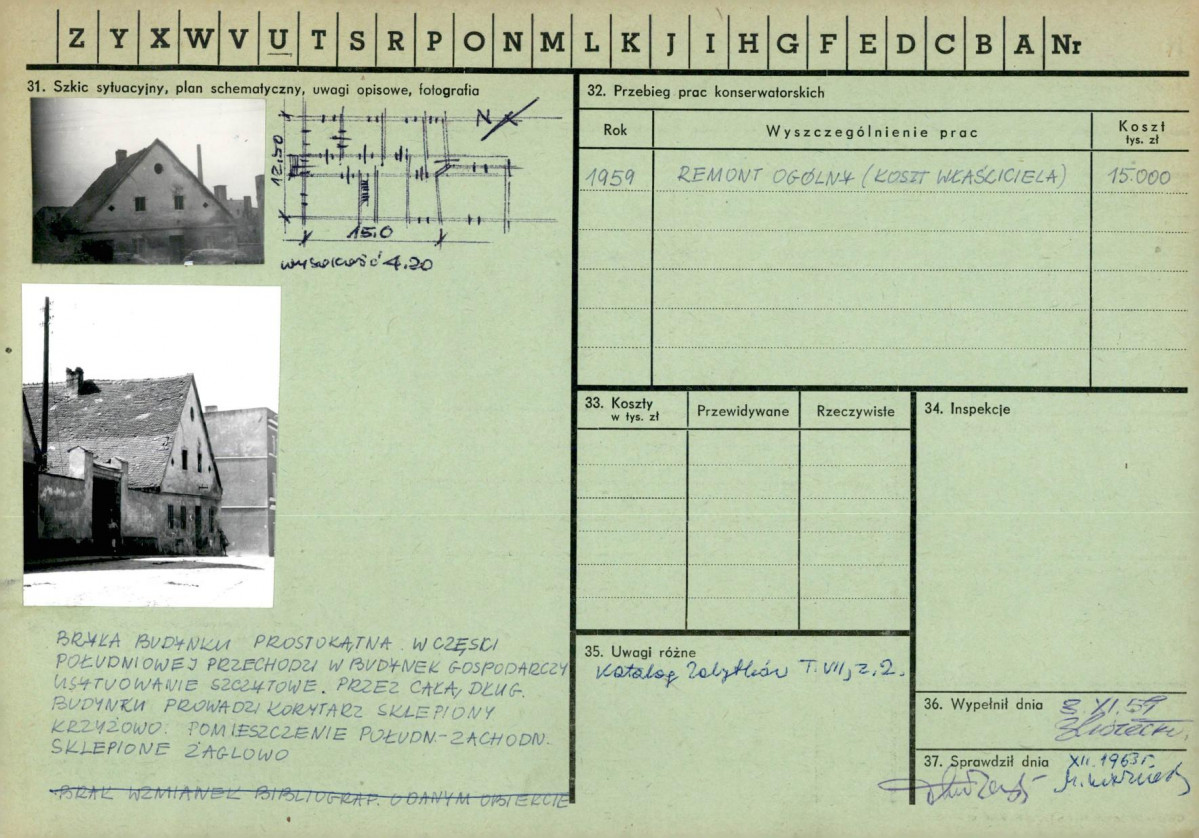 Z Y X W V U T S R P O N M L K J I H G F E D C B A Nr
31. Szkic sytuacyjny, plan schematyczny, uwagi opisowe, fotografia
N
12.50
15.0
wysokość 4.20
BRYŁA BUDYNKU PROSTOKĄTNA. W CZĘŚCI
POŁUDNIOWEJ PRZECHODZI W BUDYNEK GOSPODARCZY
USYTUOWANIE SZCZYTOWE. PRZEZ CAŁĄ DŁUG.
BUDYNKU PROWADZI KORYTARZ SKLEPIONY
KRZYŻOWO. POMIESZCZENIE POŁUDN.-ZACHODN.
SKLEPIONE ŻAGLOWO
BRAK WZMIANEK BIBLIOGRAF. O DANYM OBIEKCIE
32. Przebieg prac konserwatorskich
Rok Wyszczególnienie prac Koszt
tys. zł
1959 REMONT OGÓLNY (KOSZT WŁAŚCICIELA) 15.000
33. Koszty
w tys. zł
Przewidywane Rzeczywiste
34. Inspekcje
35. Uwagi różne
Katalog Zabytków T. VII, z. 2.
36. Wypełnił dnia 3. XI. 59
37. Sprawdził dnia XII. 1963 r.